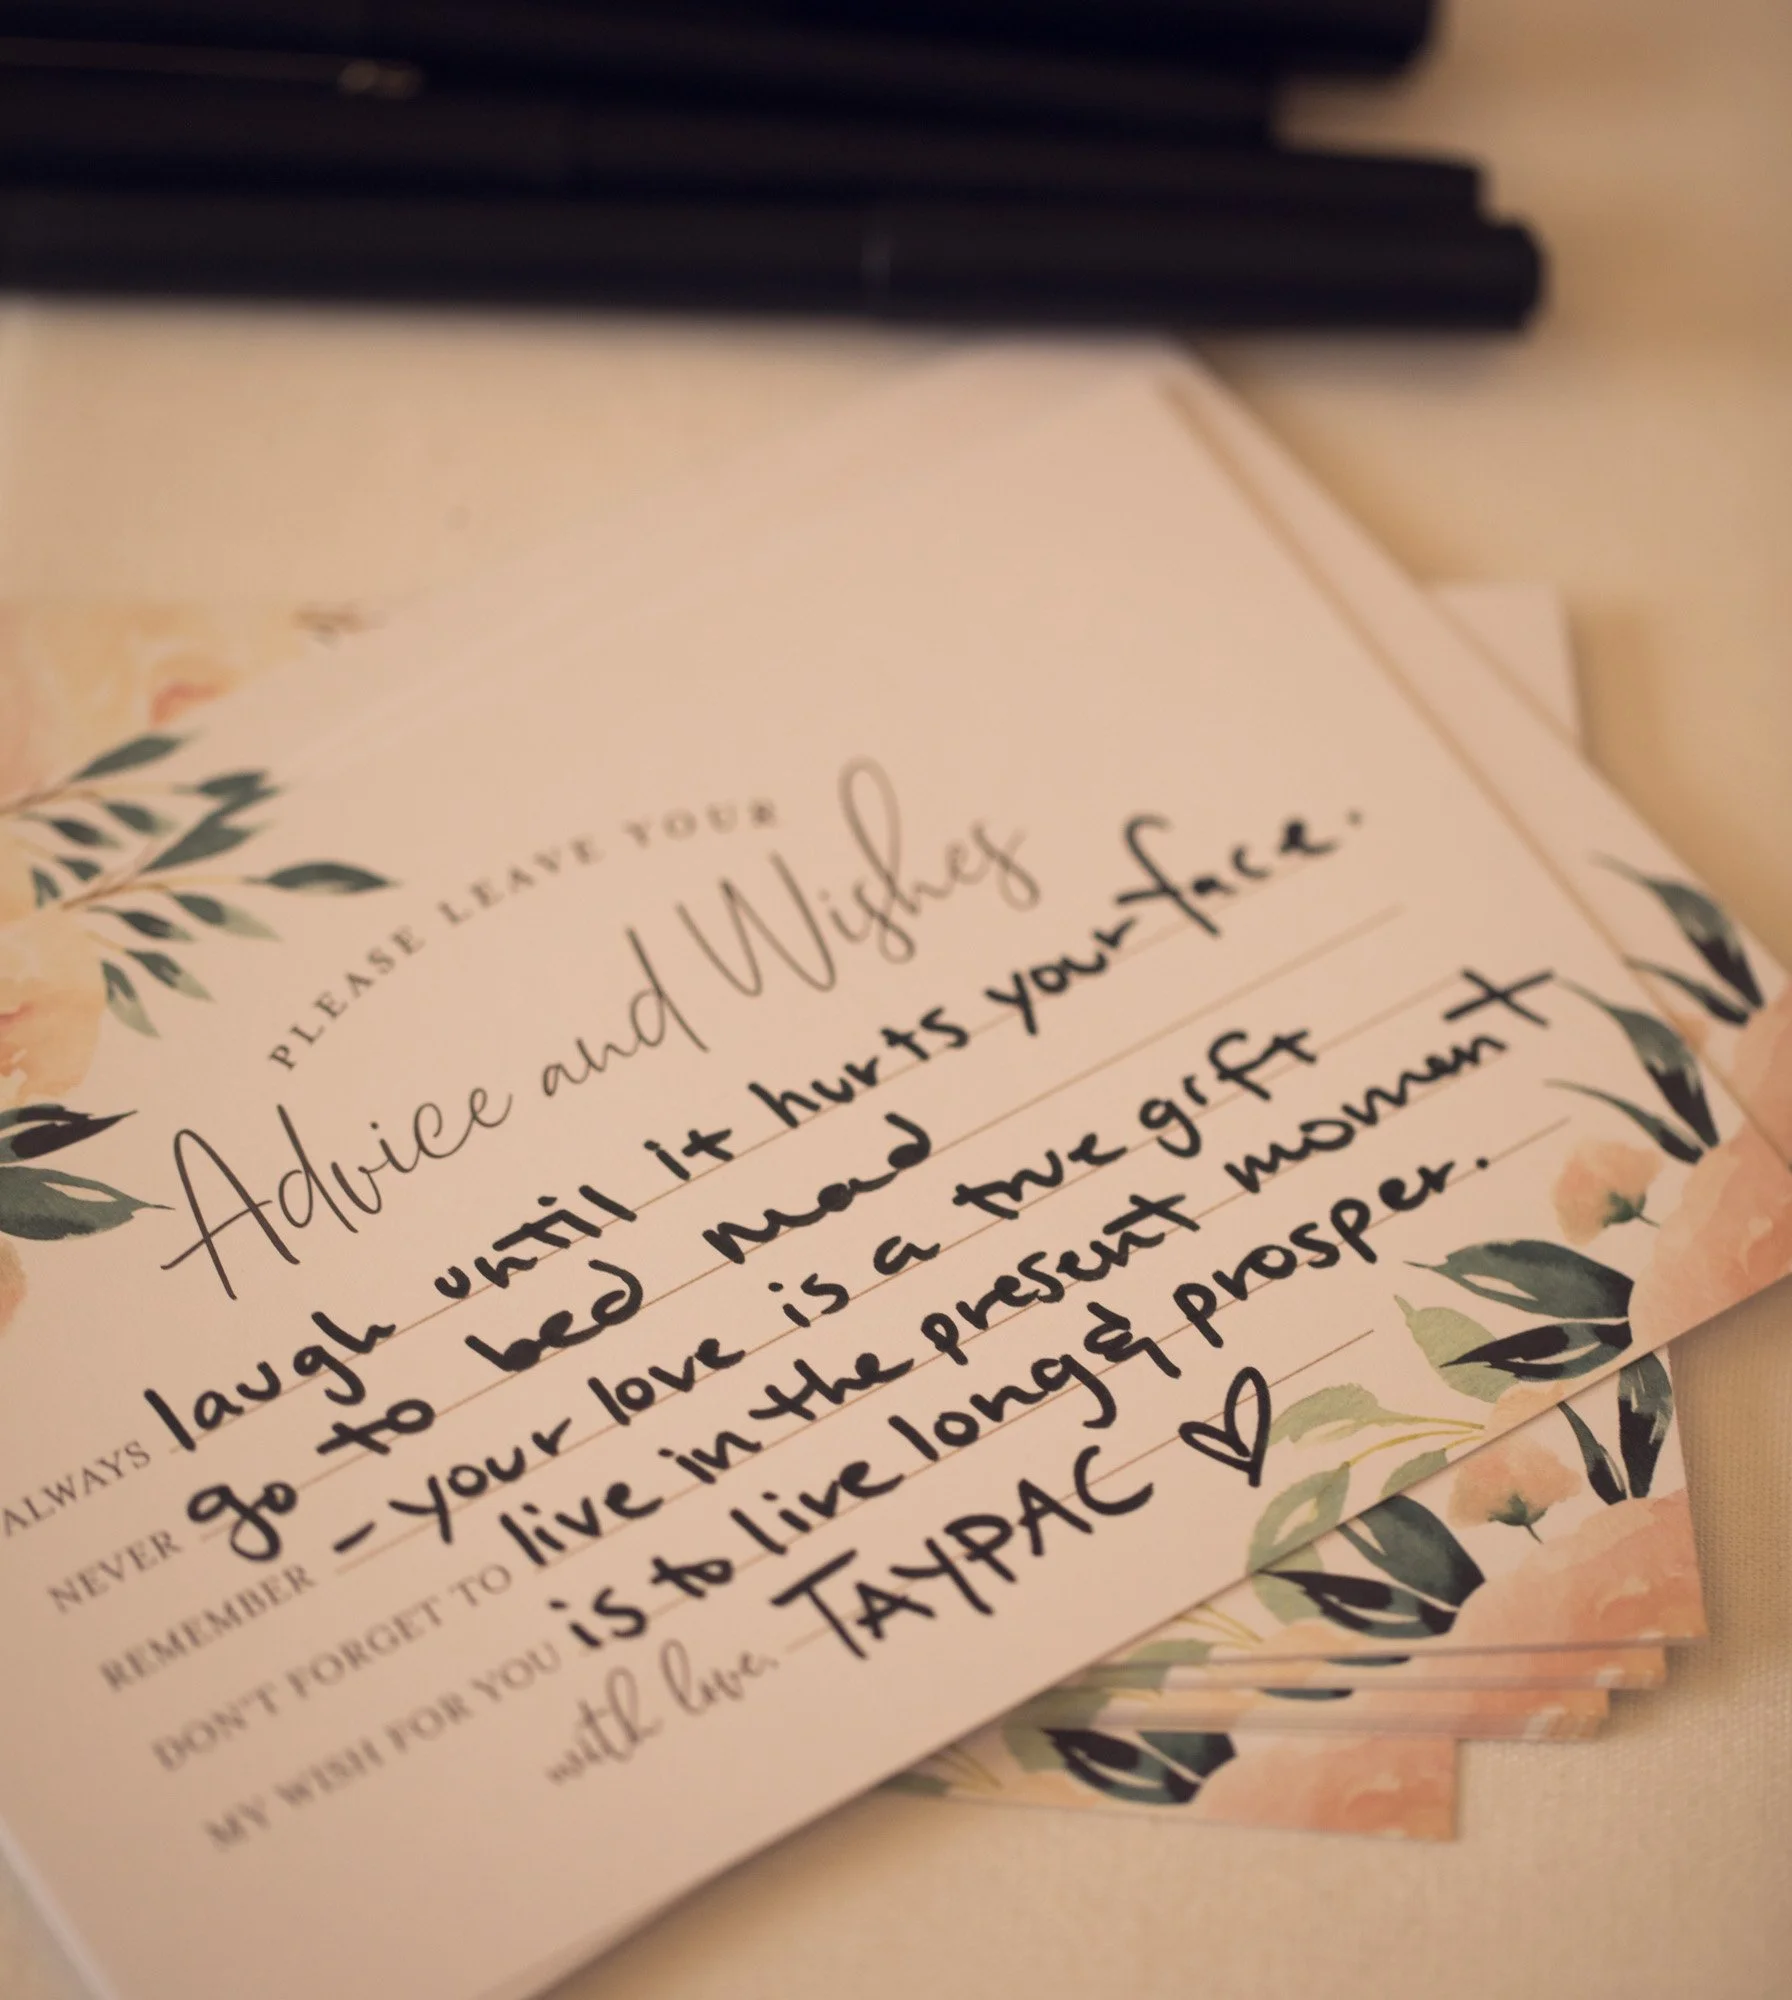 PLEASE LEAVE YOUR
Advice and Wishes
ALWAYS laugh until it hurts your face.
NEVER go to bed mad
REMEMBER - your love is a true gift
DON'T FORGET TO live in the present moment
MY WISH FOR YOU is to live long & prosper.
with love, TAYPAC ♡